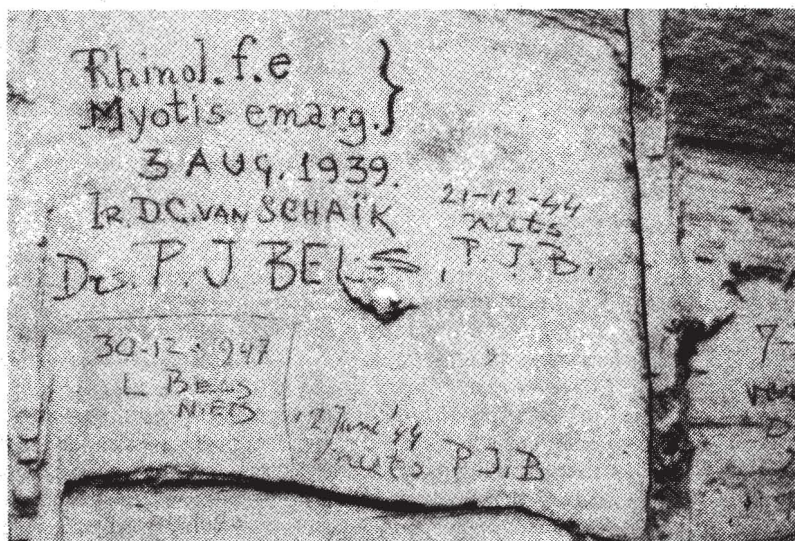 Rhinol. f. e
Myotis emarg. }
3 AUG. 1939.
IR. D.C. VAN SCHAÏK
Drs. P. J BELS,
21-12-44
niets
P. J. B.
30-12-1947
L BELS
NIETS
12 June '44
niets P J. B
7-
D